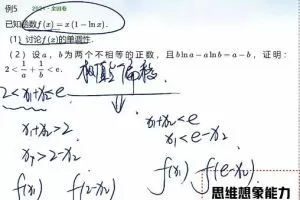 例5 2021·全国卷
已知函数f(x)=x(1-lnx).
(1) 讨论f(x)的单调性.
(2) 设a, b为两个不相等的正数, 且blna-alnb=a-b, 证明:
2<1/a+1/b<e.
极值点偏移
2<x₁+x₂<e
x₁+x₂>2
x₁+x₂<e
x₁>2-x₂
x₁<e-x₂
f(x₁) f(2-x₂)
f(x₁) f(e-x₂)
思维想象能力